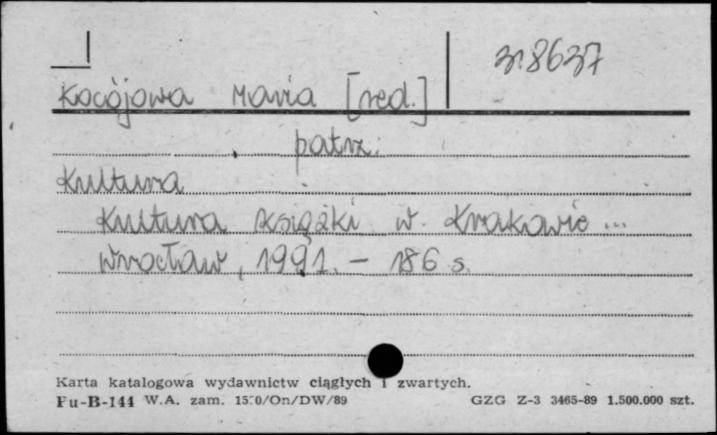 318637
Kocójowa Maria [red.]
patrz:
Kultura
Kultura książki w Krakowie ...
Wrocław, 1991. – 186 s.
Karta katalogowa wydawnictw ciągłych i zwartych.
Pu-B-144 W.A. zam. 1510/On/DW/89 GZG Z-3 3465-89 1.500.000 szt.